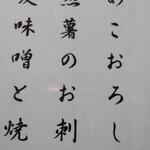 めこおろし
薯のお刺
味噌と焼